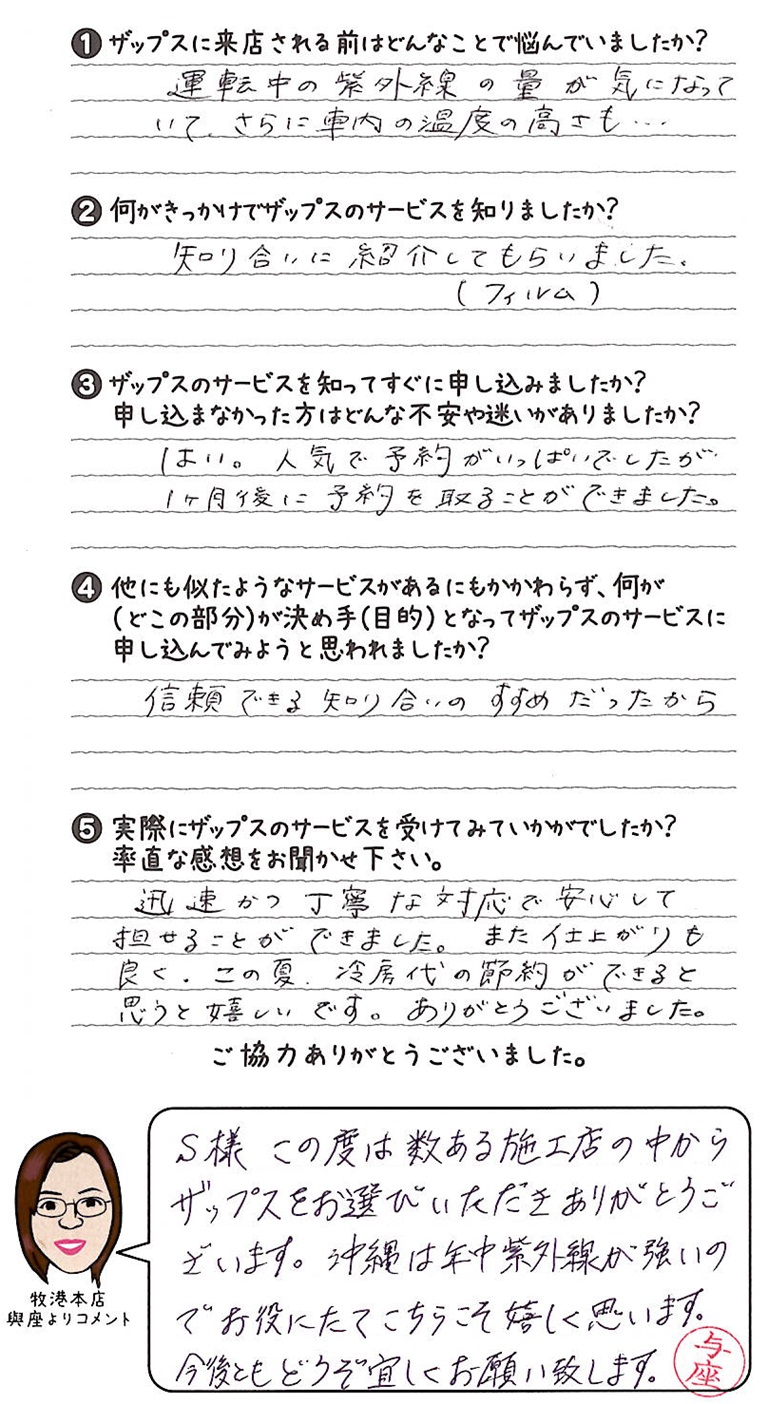 ❶ ザップスに来店される前はどんなことで悩んでいましたか?
運転中の紫外線の量が気になって
いて、さらに車内の温度の高さも…
❷ 何がきっかけでザップスのサービスを知りましたか?
知り合いに紹介してもらいました。
(フィルム)
❸ ザップスのサービスを知ってすぐに申し込みましたか?
申し込まなかった方はどんな不安や迷いがありましたか?
はい。人気で予約がいっぱいでしたが
1ヶ月後に予約を取ることができました。
❹ 他にも似たようなサービスがあるにもかかわらず、何が
(どこの部分)が決め手(目的)となってザップスのサービスに
申し込んでみようと思われましたか?
信頼できる知り合いのすすめだったから
❺ 実際にザップスのサービスを受けてみていかがでしたか?
率直な感想をお聞かせ下さい。
迅速かつ丁寧な対応で安心して
担せることができました。また仕上がりも
良く、この夏、冷房代の節約ができると
思うと嬉しいです。ありがとうございました。
ご協力ありがとうございました。
S様 この度は数ある施工店の中から
ザップスをお選びいただきありがとうご
ざいます。沖縄は年中紫外線が強いの
でお役にたてこちらこそ嬉しく思います。
今後ともどうぞ宜しくお願い致します。
与座
牧港本店
與座よりコメント